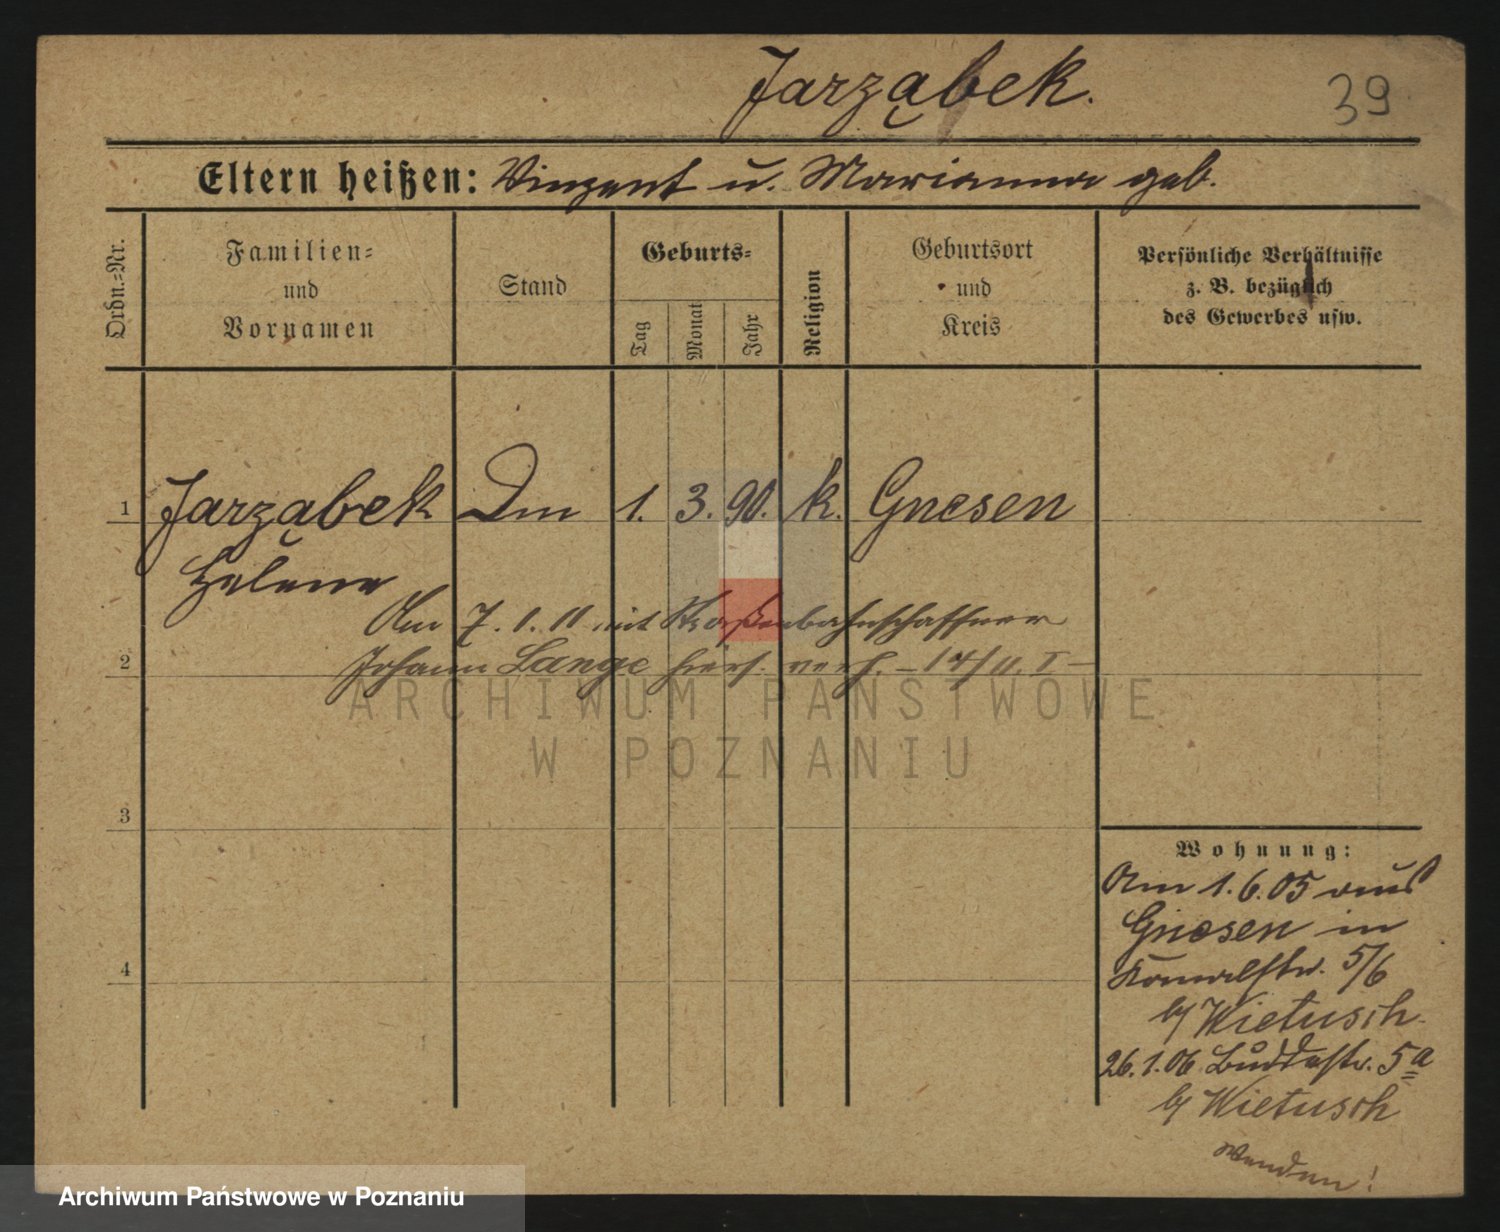 Jarząbek.
39
Eltern heißen: Vinzent u. Marianna geb.
Ordn.-Nr.
Familien-
und
Vornamen
Stand
Geburts-
Tag
Monat
Jahr
Religion
Geburtsort
und
Kreis
Persönliche Verhältnisse
z. B. bezüglich
des Gewerbes usw.
1 Jarząbek Dm 1. 3. 90. k. Gnesen
Helene
Am 7. 1. 11 mit Straßenbahnschaffner
2 Johann Lange hier verh. – 14/11. I –
ARCHIWUM PAŃSTWOWE
W POZNANIU
3
4
Wohnung:
Am 1.6.05 aus
Gnesen in
5/6
b/ Wietusch.
26.1.06 Buddestr. 5a
b/ Wietusch
Wenden!
Archiwum Państwowe w Poznaniu